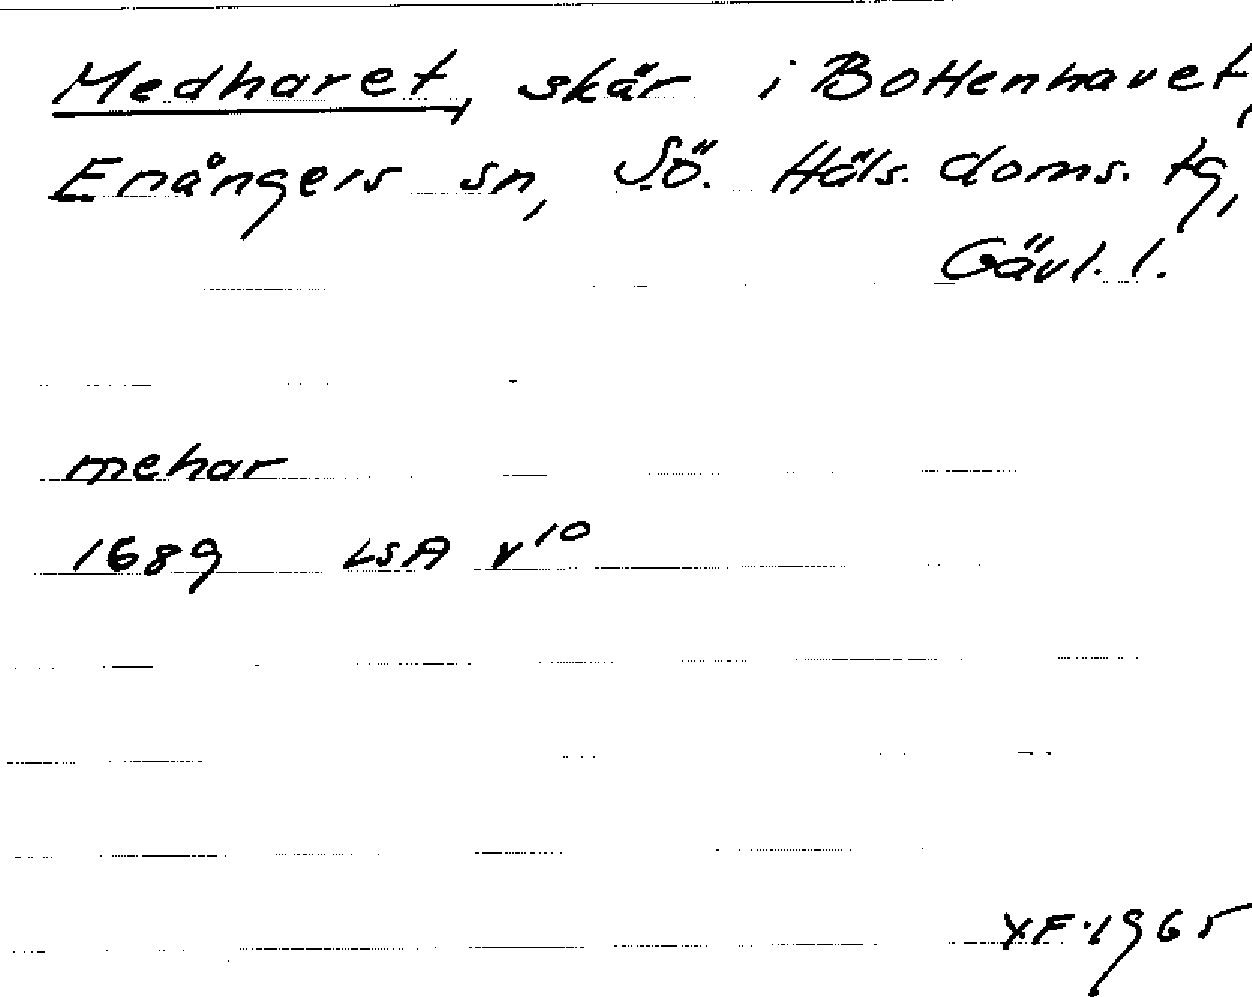 Medharet, skär i Bottenhavet,
Enångers sn, Sö. Häls. doms. tg,
Gävl. l.
mehar
1689 LSA v¹⁰
YF. 1965